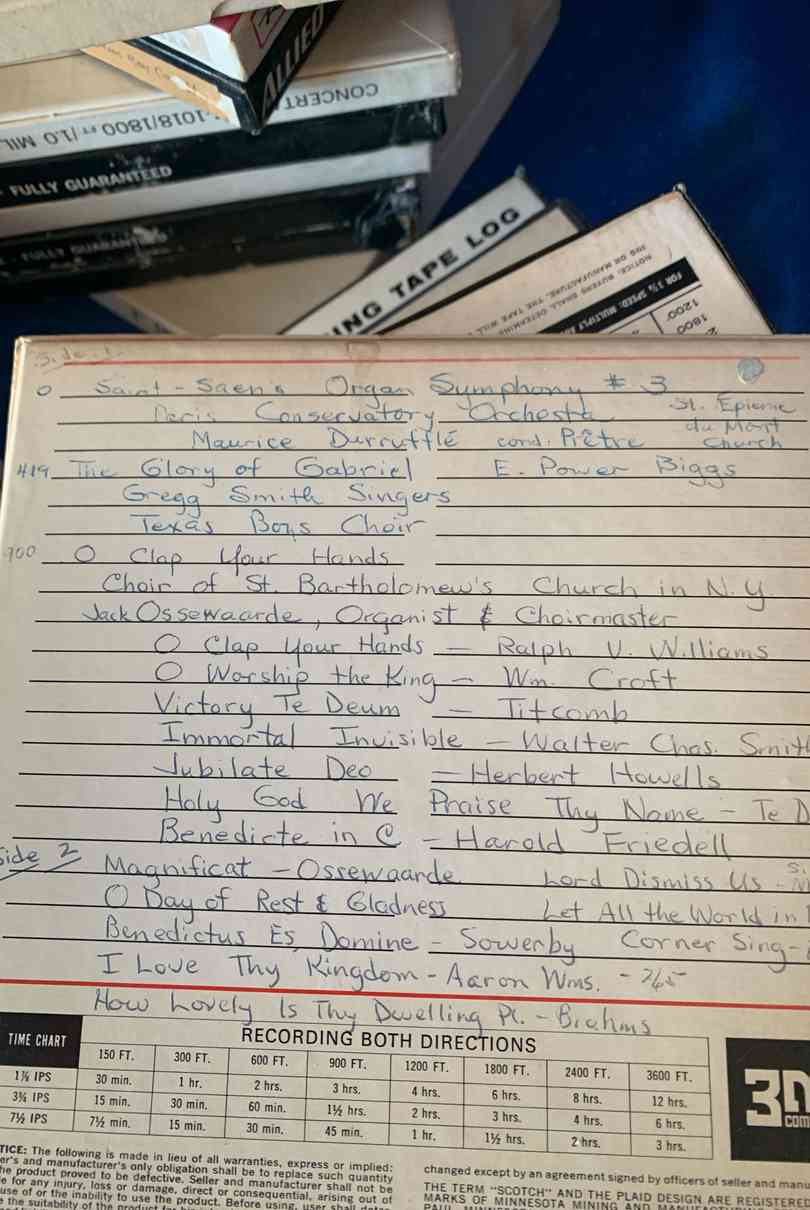 ALLIED
CONCERT
-1018/1800 FT/1.0 MIL
FULLY GUARANTEED
FULLY GUARANTEED
ING TAPE LOG
NOTICE: BUYERS SHALL DETERMINE
ING OR MANUFACTURE. THE TAPE WILL
FOR 3¾ SPEED: MULTIPLY
1200'
1800'
Side 1.
0 Saint-Saens Organ Symphony # 3
Paris Conservatory Orchesta St. Epienne
du Mont
Maurice Durrufflé cond. Prêtre Church
419 The Glory of Gabriel E. Power Biggs
Gregg Smith Singers
Texas Boys Choir
700 O Clap Your Hands
Choir of St. Bartholomew's Church in N.Y.
Jack Ossewaarde, Organist & Choirmaster
O Clap Your Hands — Ralph V. Williams
O Worship the King — Wm. Croft
Victory Te Deum — Titcomb
Immortal Invisible — Walter Chas. Smith
Jubilate Deo — Herbert Howells
Holy God We Praise Thy Name — Te D
Benedicte in C — Harold Friedell
Side 2 Magnificat — Ossewaarde Lord Dismiss Us -
O Day of Rest & Gladness Let All the World in
Benedictus Es Domine — Sowerby Corner Sing-
I Love Thy Kingdom — Aaron Wms. - 765
How Lovely Is Thy Dwelling Pl. — Brahms
RECORDING BOTH DIRECTIONS
TIME CHART 150 FT. 300 FT. 600 FT. 900 FT. 1200 FT. 1800 FT. 2400 FT. 3600 FT.
1⅞ IPS 30 min. 1 hr. 2 hrs. 3 hrs. 4 hrs. 6 hrs. 8 hrs. 12 hrs.
3¾ IPS 15 min. 30 min. 60 min. 1½ hrs. 2 hrs. 3 hrs. 4 hrs. 6 hrs.
7½ IPS 7½ min. 15 min. 30 min. 45 min. 1 hr. 1½ hrs. 2 hrs. 3 hrs.
3M
COM
TICE: The following is made in lieu of all warranties, express or implied:
er's and manufacturer's only obligation shall be to replace such quantity
he product proved to be defective. Seller and manufacturer shall not be
e for any injury, loss or damage, direct or consequential, arising out of
use of or the inability to use the product. Before using, user shall
e the suitability of the product
changed except by an agreement signed by officers of seller and manu
THE TERM "SCOTCH" AND THE PLAID DESIGN ARE REGISTERED
MARKS OF MINNESOTA MINING AND